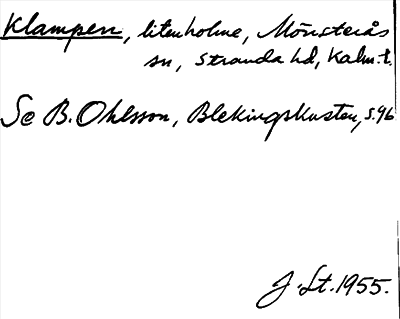 Klampen, liten holme, Mönsterås
sn, Stranda hd, Kalm. l.
Se B. Ohlsson, Blekingskusten, s. 96
J. St. 1955.